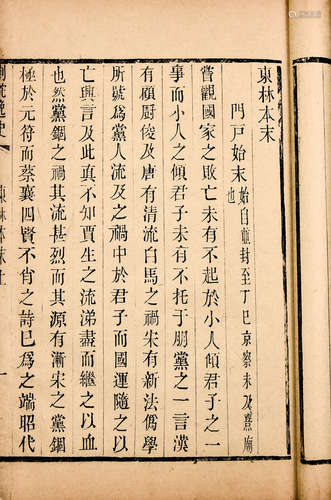 東林本末
門戶始末 始自並封至丁巳京察未及熹廟也
嘗觀國家之敗亡未有不起於小人傾君子之一
事而小人之傾君子未有不托于朋黨之一言漢
有顧厨俊及唐有清流白馬之禍宋有新法僞學
所號爲黨人流及之禍中於君子而國運隨之以
亡興言及此眞不知賈生之流涕盡而繼之以血
也然黨錮之禍其流甚烈而其源有漸宋之黨錮
極於元符而蔡襄四賢不肖之詩已爲之端昭代
荊駝逸史 東林本末上 一